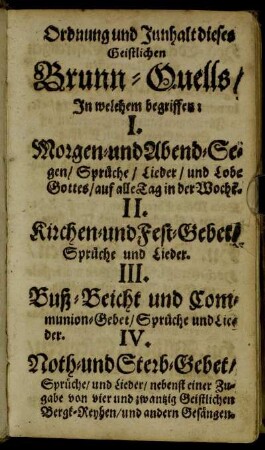 Ordnung und Innhalt dieses
Geistlichen
Brunn-Quells/
In welchem begriffen:
I.
Morgen-und Abend-Se-
gen/ Sprüche/ Lieder/ und Lobe
Gottes/ auf alle Tag in der Woche.
II.
Kirchen-und Fest-Gebet/
Sprüche und Lieder.
III.
Buß-Beicht und Com-
munion-Gebet/ Sprüche und Lie-
der.
IV.
Noth-und Sterb-Gebet/
Sprüche/ und Lieder/ nebenst einer Zu-
gabe von vier und zwantzig Geistlichen
Bergk-Reyhen/ und andern Gesängen.